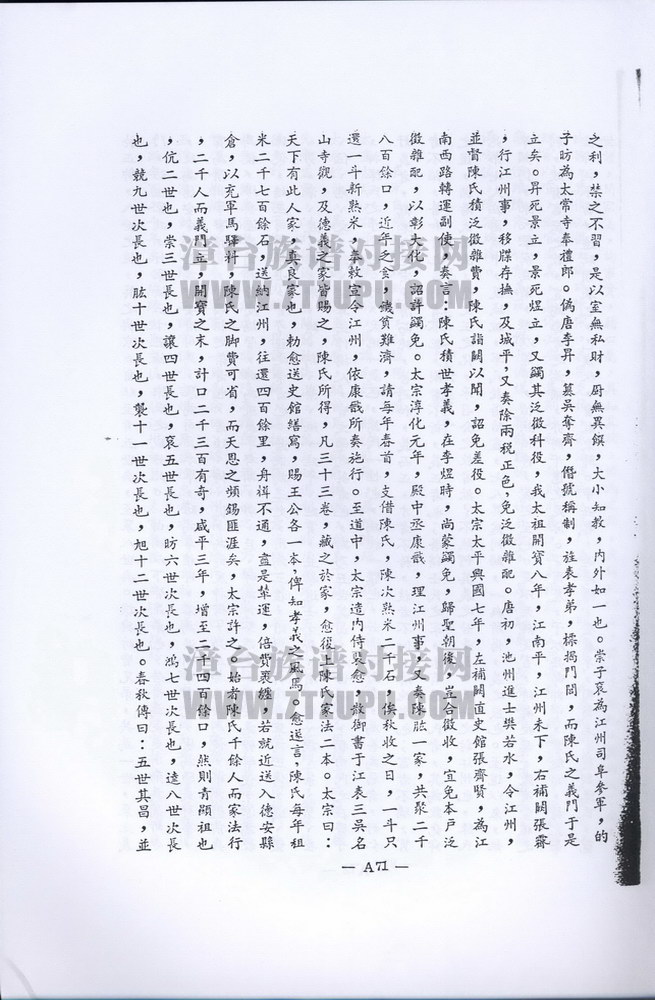 之利，禁之不習，是以室無私財，厨無異饌，大小知教，內外如一也。崇子袞為江州司阜參軍，的
子昉為太常寺奉禮郎。偽唐李昇，篡吳奪齊，僭號稱制，旌表孝弟，標揭門閭，而陳氏之義門于是
立矣。昇死景立，景死煜立，又蠲其泛徵科役，我太祖開寶八年，江南平，江州未下，右補闕張霖
，行江州事，移牒存撫，及城平，又奏除兩税正色，免泛徵雜配。唐初，池州進士樊若水，令江州，
並督陳氏積泛徵雜費，陳氏詣闕以聞，詔免差役。太宗太平興國七年，左補闕直史館張齊賢，為江
南西路轉運副使，奏言：陳氏積世孝義，在李煜時，尚蒙蠲免，歸聖朝後，豈合徵收，宜免本戶泛
徵雜配，以彰大化，詔許蠲免。太宗淳化元年，殿中丞康戩，理江州事，又奏陳肱一家，共聚二千
八百餘口，近年乏食，饑貧難濟，請每年春首，支借陳氏，陳次熟米二千石，俟秋收之日，一斗只
還一斗新熟米，奉敕宣令江州，依康戩所奏施行。至道中，太宗遣內侍裴愈，散御書于江表三吳名
山寺觀，及德義之家皆賜之，陳氏所得，凡三十三卷，藏之於家，愈復上陳氏家法二本。太宗曰：
天下有此人家，真良家也，勅愈送史館繕寫，賜王公各一本，俾知孝義之風焉。愈遂言，陳氏每年租
米二千七百餘石，送納江州，往還四百餘里，舟楫不通，盡是葦運，倍費裹纏，若就近送入德安縣
倉，以充軍馬驛料，陳氏之脚費可省，而天恩之頻錫匪涯矣，太宗許之。始者陳氏千餘人而家法行
，二千人而義門立，開寶之末，計口二千三百有奇，咸平三年，增至二千四百餘口，然則青顯祖也
，伉二世也，崇三世長也，讓四世長也，袞五世長也，昉六世次長也，鴻七世次長也，逵八世次長
也，競九世次長也，肱十世次長也，襲十一世次長也，旭十二世次長也。春秋傳曰：五世其昌，並
— A71 —
漳台族谱对接网
WWW.ZTZUPU.COM
漳台族谱对接网
WWW.ZTZUPU.COM